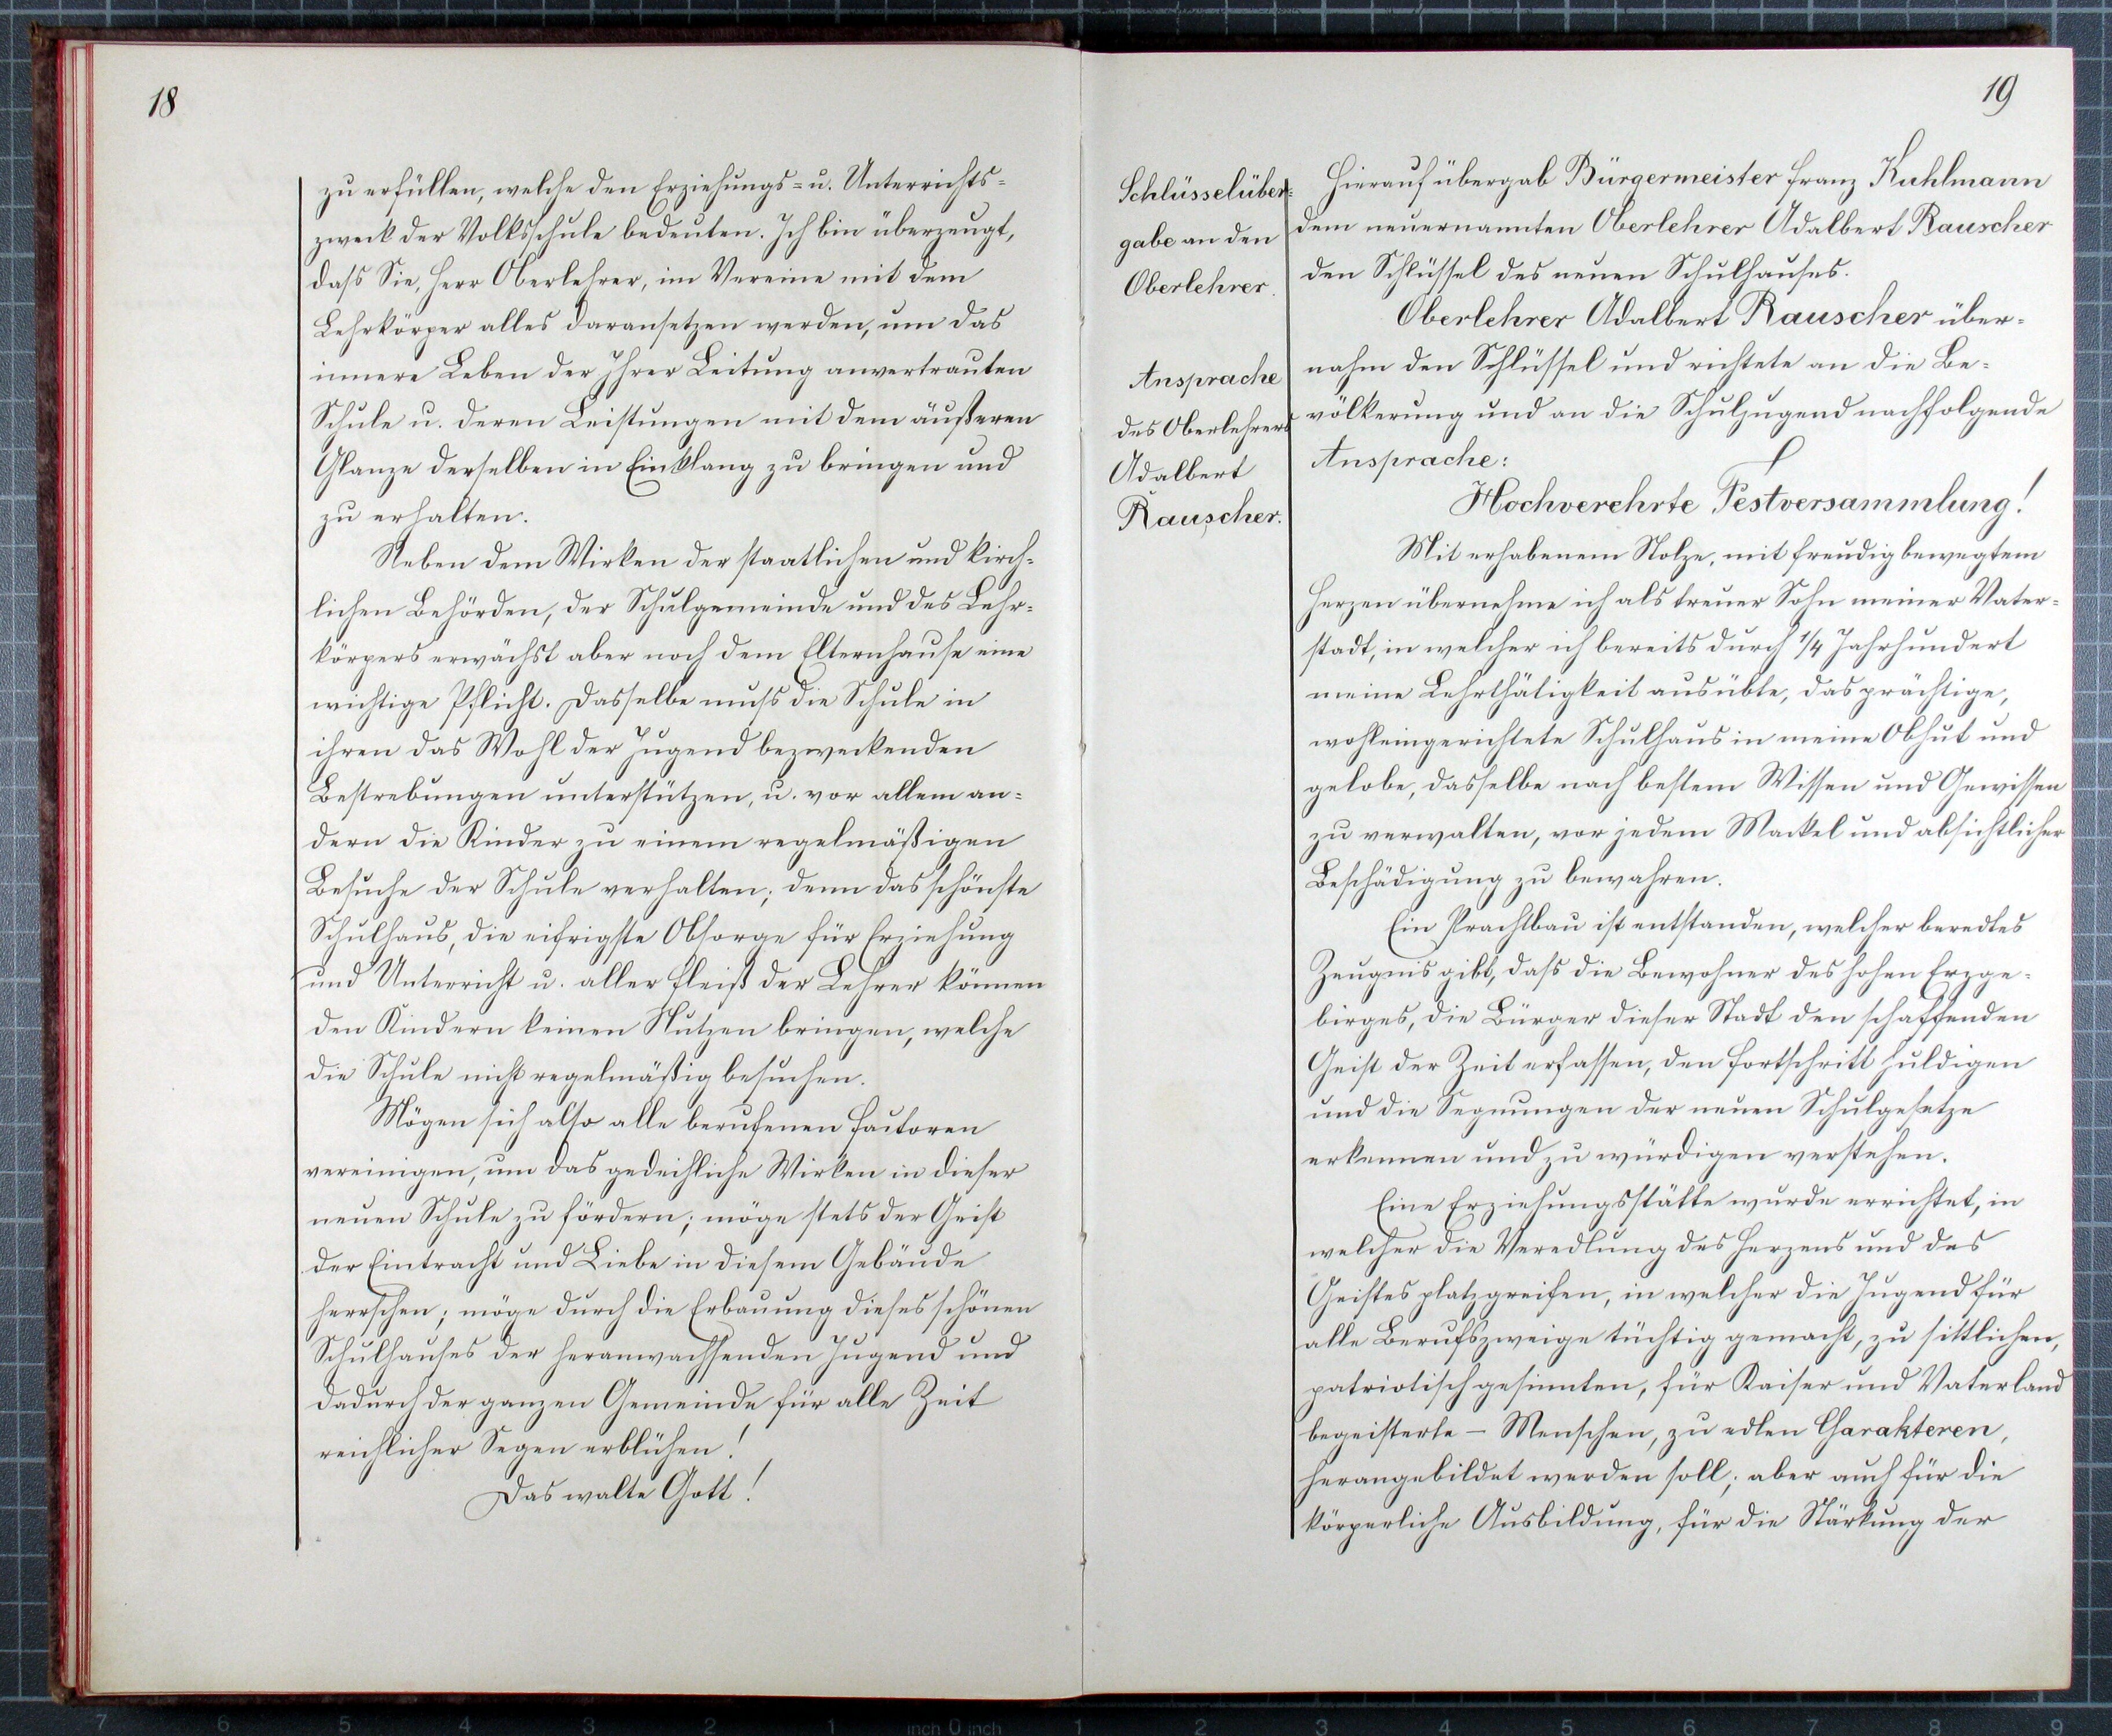 18
zu erfüllen, welche den Erziehungs- u. Unterrichts-
zweck der Volksschule bedeuten. Ich bin überzeugt,
dass Sie, Herr Oberlehrer, im Vereine mit dem
Lehrkörper alles daransetzen werden, um das
innere Leben der Ihrer Leitung anvertrauten
Schule u. deren Leistungen mit dem äußeren
Glanze derselben in Einklang zu bringen und
zu erhalten.
Neben dem Wirken der staatlichen und kirch-
lichen Behörden, der Schulgemeinde und des Lehr-
körpers erwächst aber noch dem Elternhause eine
wichtige Pflicht. Dasselbe muss die Schule in
ihren das Wohl der Jugend bezweckenden
Bestrebungen unterstützen, u. vor allem an-
dern die Kinder zu einem regelmäßigen
Besuche der Schule verhalten; denn das schönste
Schulhaus, die eifrigste Obsorge für Erziehung
und Unterricht u. aller Fleiß der Lehrer können
den Kindern keinen Nutzen bringen, welche
die Schule nicht regelmäßig besuchen.
Mögen sich also alle berufenen Factoren
vereinigen, um das gedeihliche Wirken in dieser
neuen Schule zu fördern; möge stets der Geist
der Eintracht und Liebe in diesem Gebäude
herrschen; möge durch die Erbauung dieses schönen
Schulhauses der heranwachsenden Jugend und
dadurch der ganzen Gemeinde für alle Zeit
reichlicher Segen erblühen!
Das walte Gott!
19
Schlüsselüber-
gabe an den
Oberlehrer.
Ansprache
des Oberlehrers
Adalbert
Rauscher.
Hierauf übergab Bürgermeister Franz Kuhlmann
dem neuernannten Oberlehrer Adalbert Rauscher
den Schlüssel des neuen Schulhauses.
Oberlehrer Adalbert Rauscher über-
nahm den Schlüssel und richtete an die Be-
völkerung und an die Schuljugend nachfolgende
Ansprache:
Hochverehrte Festversammlung!
Mit erhabenem Stolze, mit freudig bewegtem
Herzen übernehme ich als treuer Sohn meiner Vater-
stadt, in welcher ich bereits durch 1/4 Jahrhundert
meine Lehrthätigkeit ausübte, das prächtige,
wohleingerichtete Schulhaus in meine Obhut und
gelobe, dasselbe nach bestem Wissen und Gewissen
zu verwalten, vor jedem Mackel und absichtlicher
Beschädigung zu bewahren.
Ein Prachtbau ist entstanden, welcher beredtes
Zeugnis gibt, dass die Bewohner des hohen Erzge-
birges, die Bürger dieser Stadt den schaffenden
Geist der Zeit erfassen, den Fortschritt huldigen
und die Segnungen der neuen Schulgesetze
erkennen und zu würdigen verstehen.
Eine Erziehungsstätte wurde errichtet, in
welcher die Veredlung des Herzens und des
Geistes platzgreifen, in welcher die Jugend für
alle Berufszweige tüchtig gemacht, zu sittlichen,
patriotisch gesinnten, für Kaiser und Vaterland
begeisterte – Menschen, zu edlen Charakteren,
herangebildet werden soll; aber auch für die
körperliche Ausbildung, für die Stärkung der
7 6 5 4 3 2 1 inch 0 inch 1 2 3 4 5 6 7 8 9